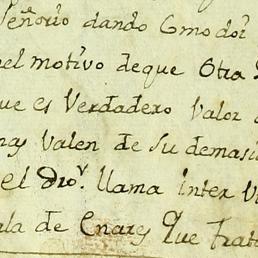 señorio dando Como doi
el motivo deque Otra
ue es Verdadero Valor
mas valen de su demasi
el dro. llama inter vi
ala de Enares Que trat